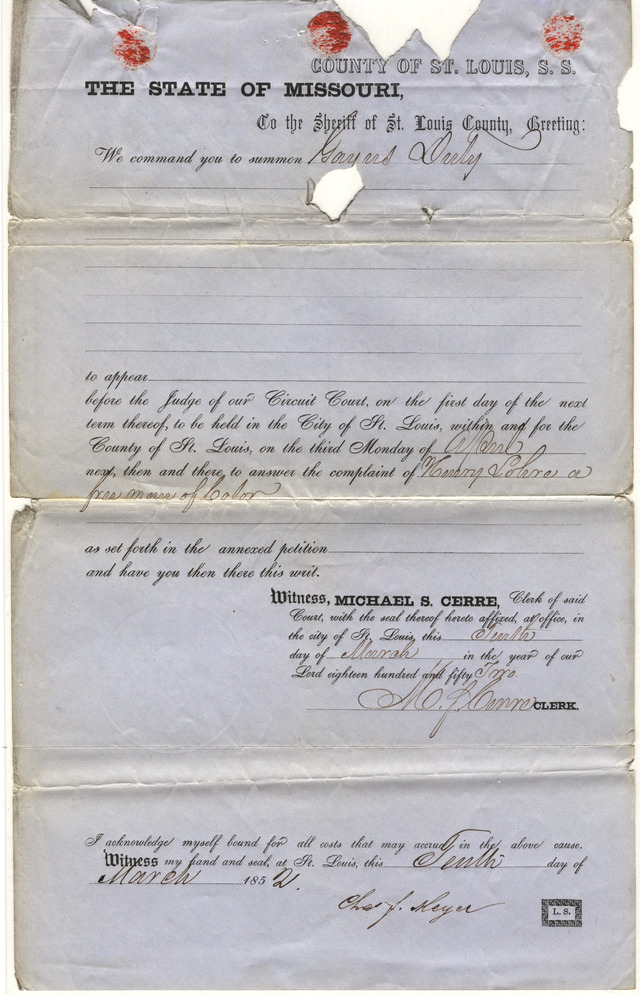 COUNTY OF ST. LOUIS, S. S.
THE STATE OF MISSOURI,
To the Sheriff of St. Louis County, Greeting:
We command you to summon
to appear
before the Judge of our Circuit Court, on the first day of the next
term thereof, to be held in the City of St. Louis, within and for the
County of St. Louis, on the third Monday of April
next, then and there, to answer the complaint of Henry a
free man of Color
as set forth in the annexed petition
and have you then there this writ.
Witness, MICHAEL S. CERRE, Clerk of said
Court, with the seal thereof hereto affixed, at office, in
the city of St. Louis, this Tenth
day of March in the year of our
Lord eighteen hundred and fifty Two
M. S. Cerre CLERK.
I acknowledge myself bound for all costs that may accrue in the above cause.
Witness my hand and seal, at St. Louis, this Tenth day of
March 1852.
Chas J. Meyer
L. S.